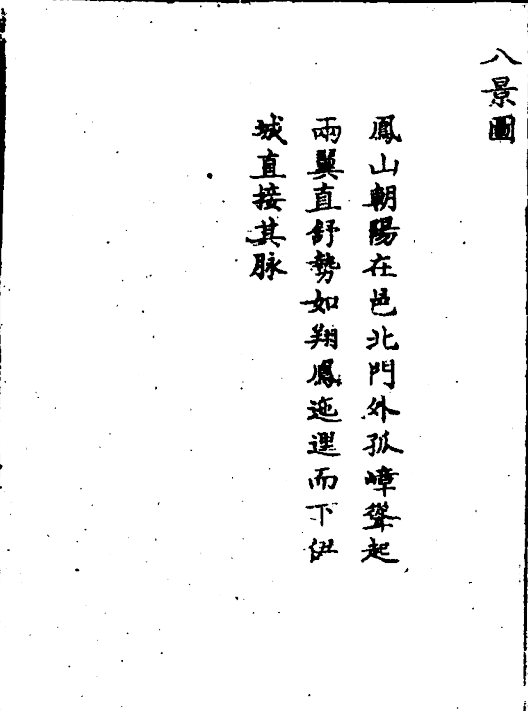 八景圖
鳳山朝陽在邑北門外孤嶂聳起
兩翼直舒勢如翔鳳迤邐而下伊
城直接其脉